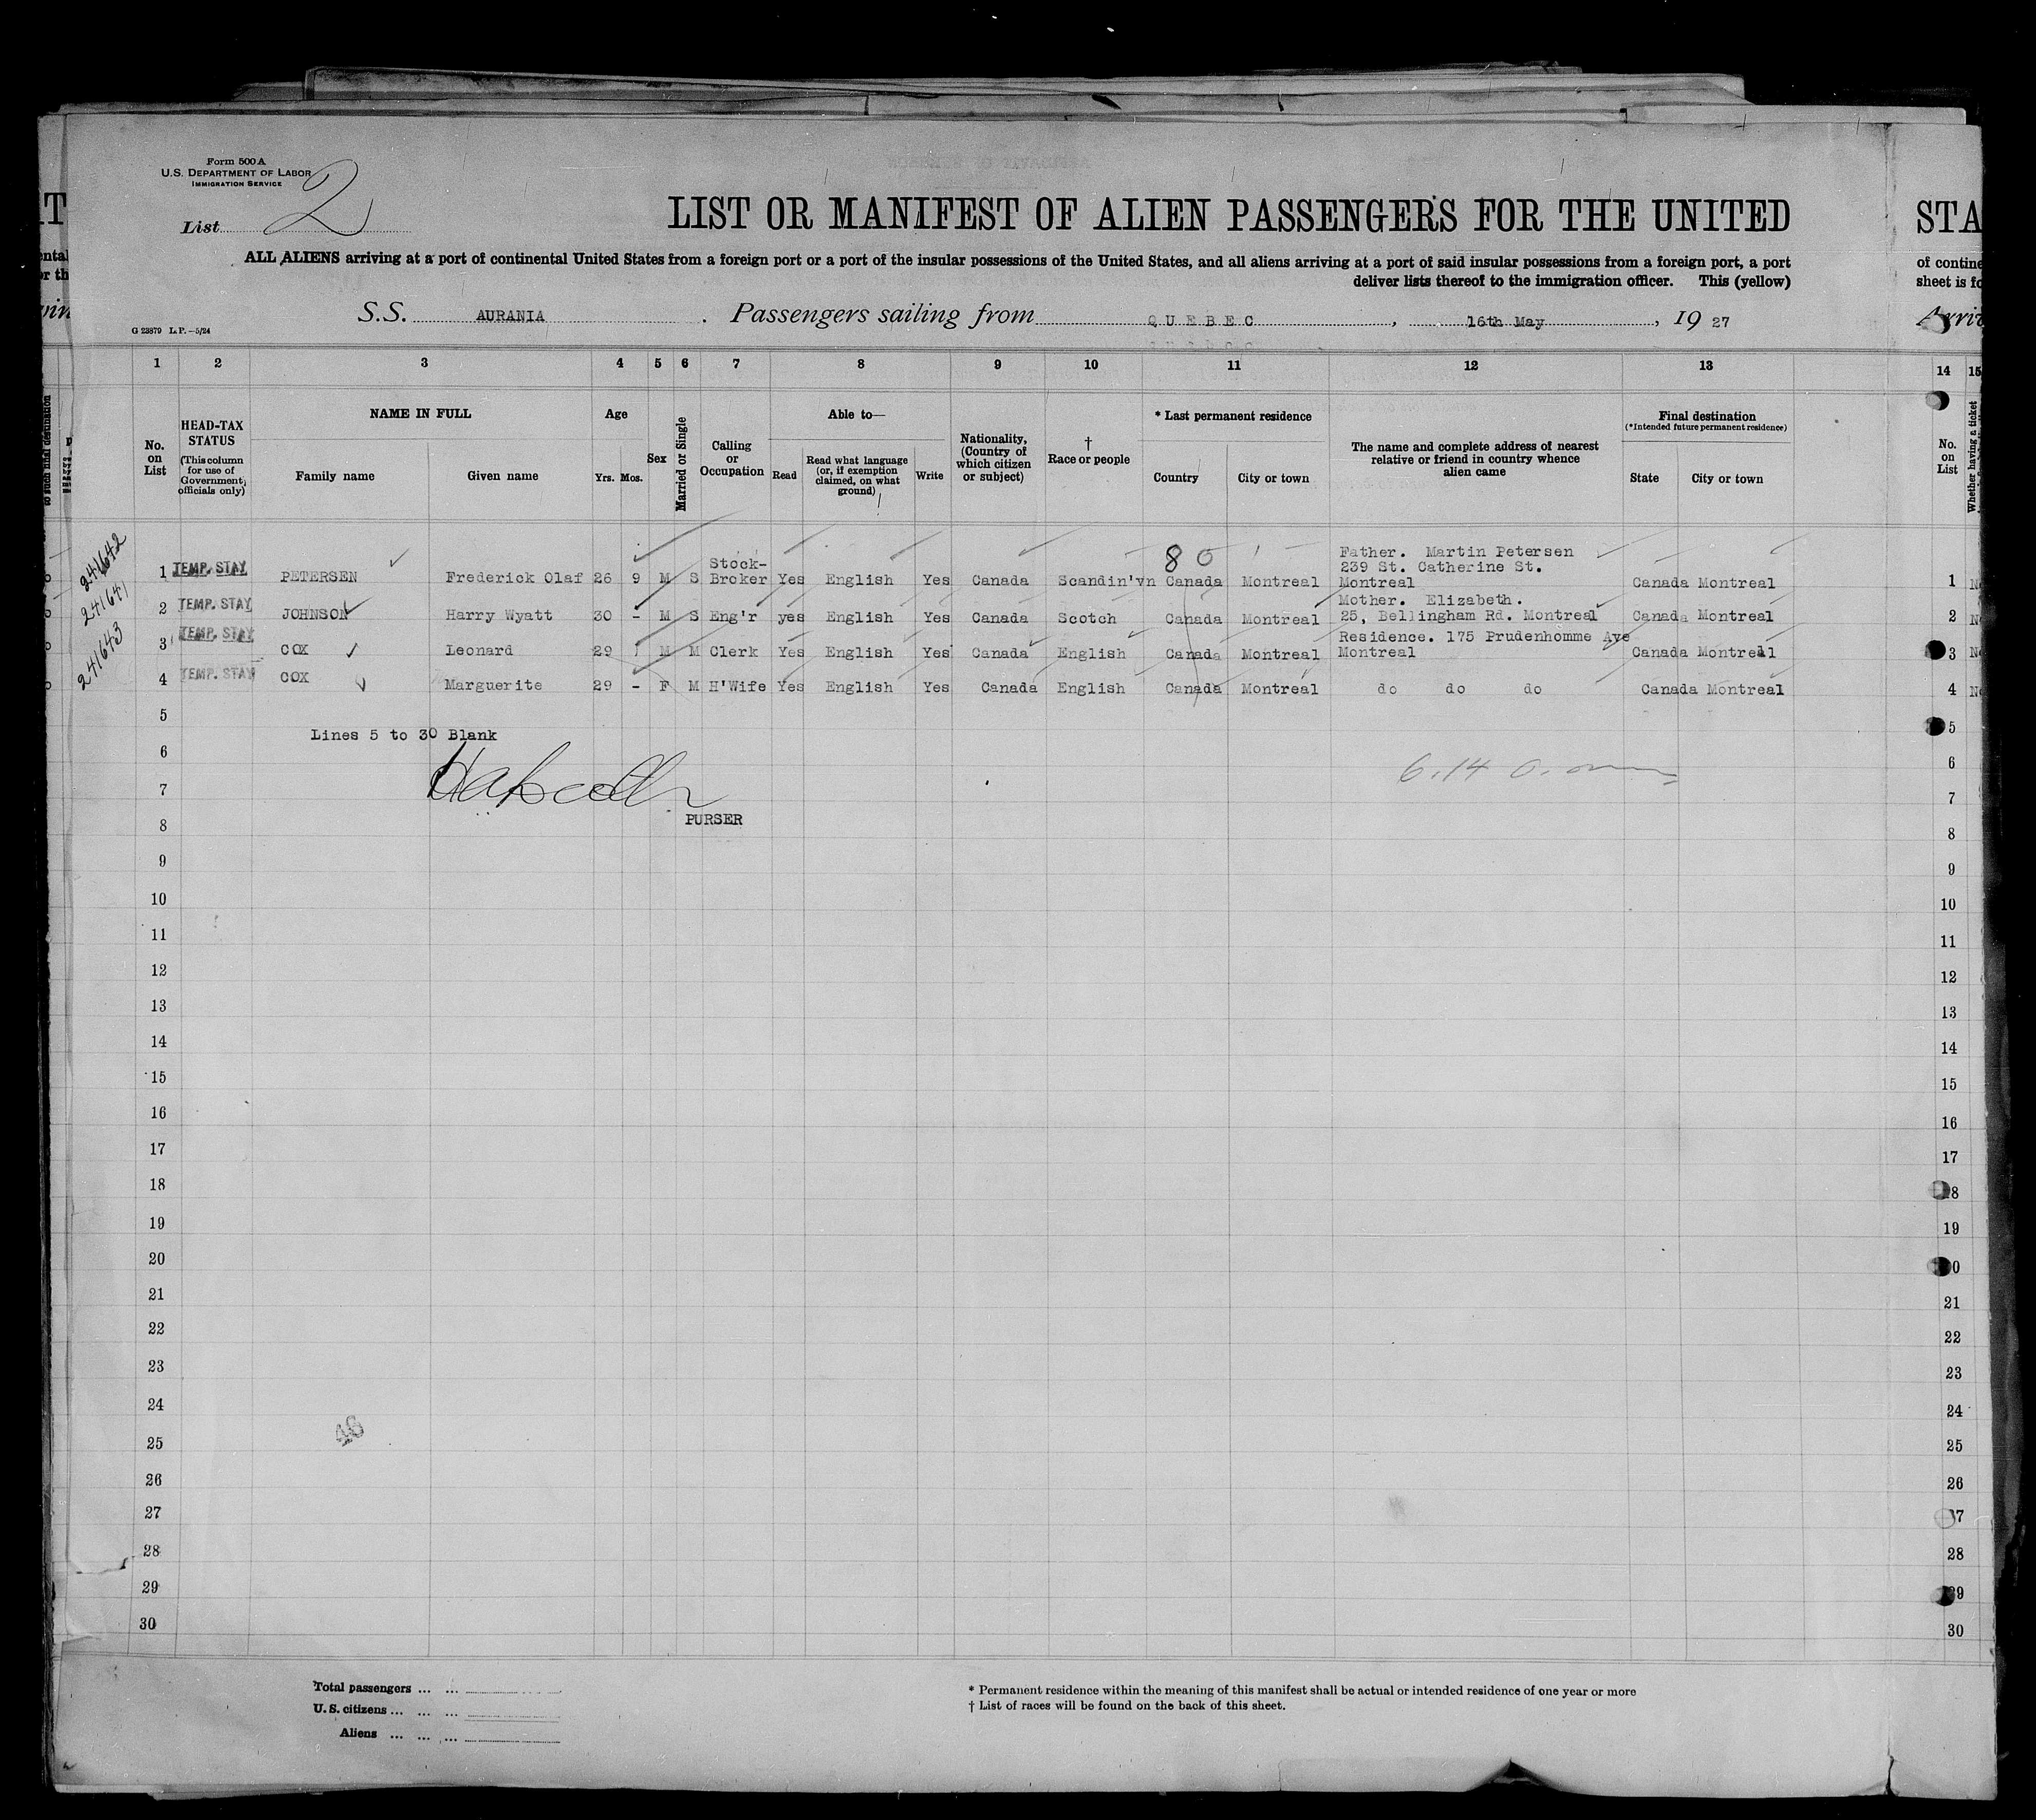 Form 500 A
U.S. DEPARTMENT OF LABOR
IMMIGRATION SERVICE
List 2
LIST OR MANIFEST OF ALIEN PASSENGERS FOR THE UNITED
STA
ALL ALIENS arriving at a port of continental United States from a foreign port or a port of the insular possessions of the United States, and all aliens arriving at a port of said insular possessions from a foreign port, a port
deliver lists thereof to the immigration officer. This (yellow)
of contine
sheet is fo
S.S. AURANIA. Passengers sailing from QUEBEC, 16th May, 19 27
Arriv
G 23879 L.P.—5/24
1 2 3 4 5 6 7 8 9 10 11 12 13 14 15
No. on List
HEAD-TAX STATUS (This column for use of Government officials only)
NAME IN FULL
Family name Given name
Age
Yrs. Mos.
Sex
Married or Single
Calling or Occupation
Able to—
Read
Read what language (or, if exemption claimed, on what ground)
Write
Nationality, (Country of which citizen or subject)
† Race or people
* Last permanent residence
Country City or town
The name and complete address of nearest relative or friend in country whence alien came
Final destination
(*Intended future permanent residence)
State City or town
No. on List
Whether having a ticket
to such final destination
241642
241641
241643
80
1 TEMP. STAY PETERSEN Frederick Olaf 26 9 M S Stock-Broker Yes English Yes Canada Scandin'vn Canada Montreal Father. Martin Petersen 239 St. Catherine St. Montreal Canada Montreal 1
2 TEMP. STAY JOHNSON Harry Wyatt 30 - M S Eng'r yes English Yes Canada Scotch Canada Montreal Mother. Elizabeth. 25, Bellingham Rd. Montreal Canada Montreal 2
3 TEMP. STAY COX Leonard 29 M M Clerk Yes English Yes Canada English Canada Montreal Residence. 175 Prudenhomme Ave Montreal Canada Montreal 3
4 TEMP. STAY COX Marguerite 29 - F M H'Wife Yes English Yes Canada English Canada Montreal do do do Canada Montreal 4
5 5
Lines 5 to 30 Blank
6 6
7 7
PURSER
8 8
9 9
10 10
11 11
12 12
13 13
14 14
15 15
16 16
17 17
18 18
19 19
20 20
21 21
22 22
23 23
24 24
48
25 25
26 26
27 27
28 28
29 29
30 30
Total passengers ... ...
U.S. citizens ... ... ...
Aliens ... ... ...
* Permanent residence within the meaning of this manifest shall be actual or intended residence of one year or more
† List of races will be found on the back of this sheet.